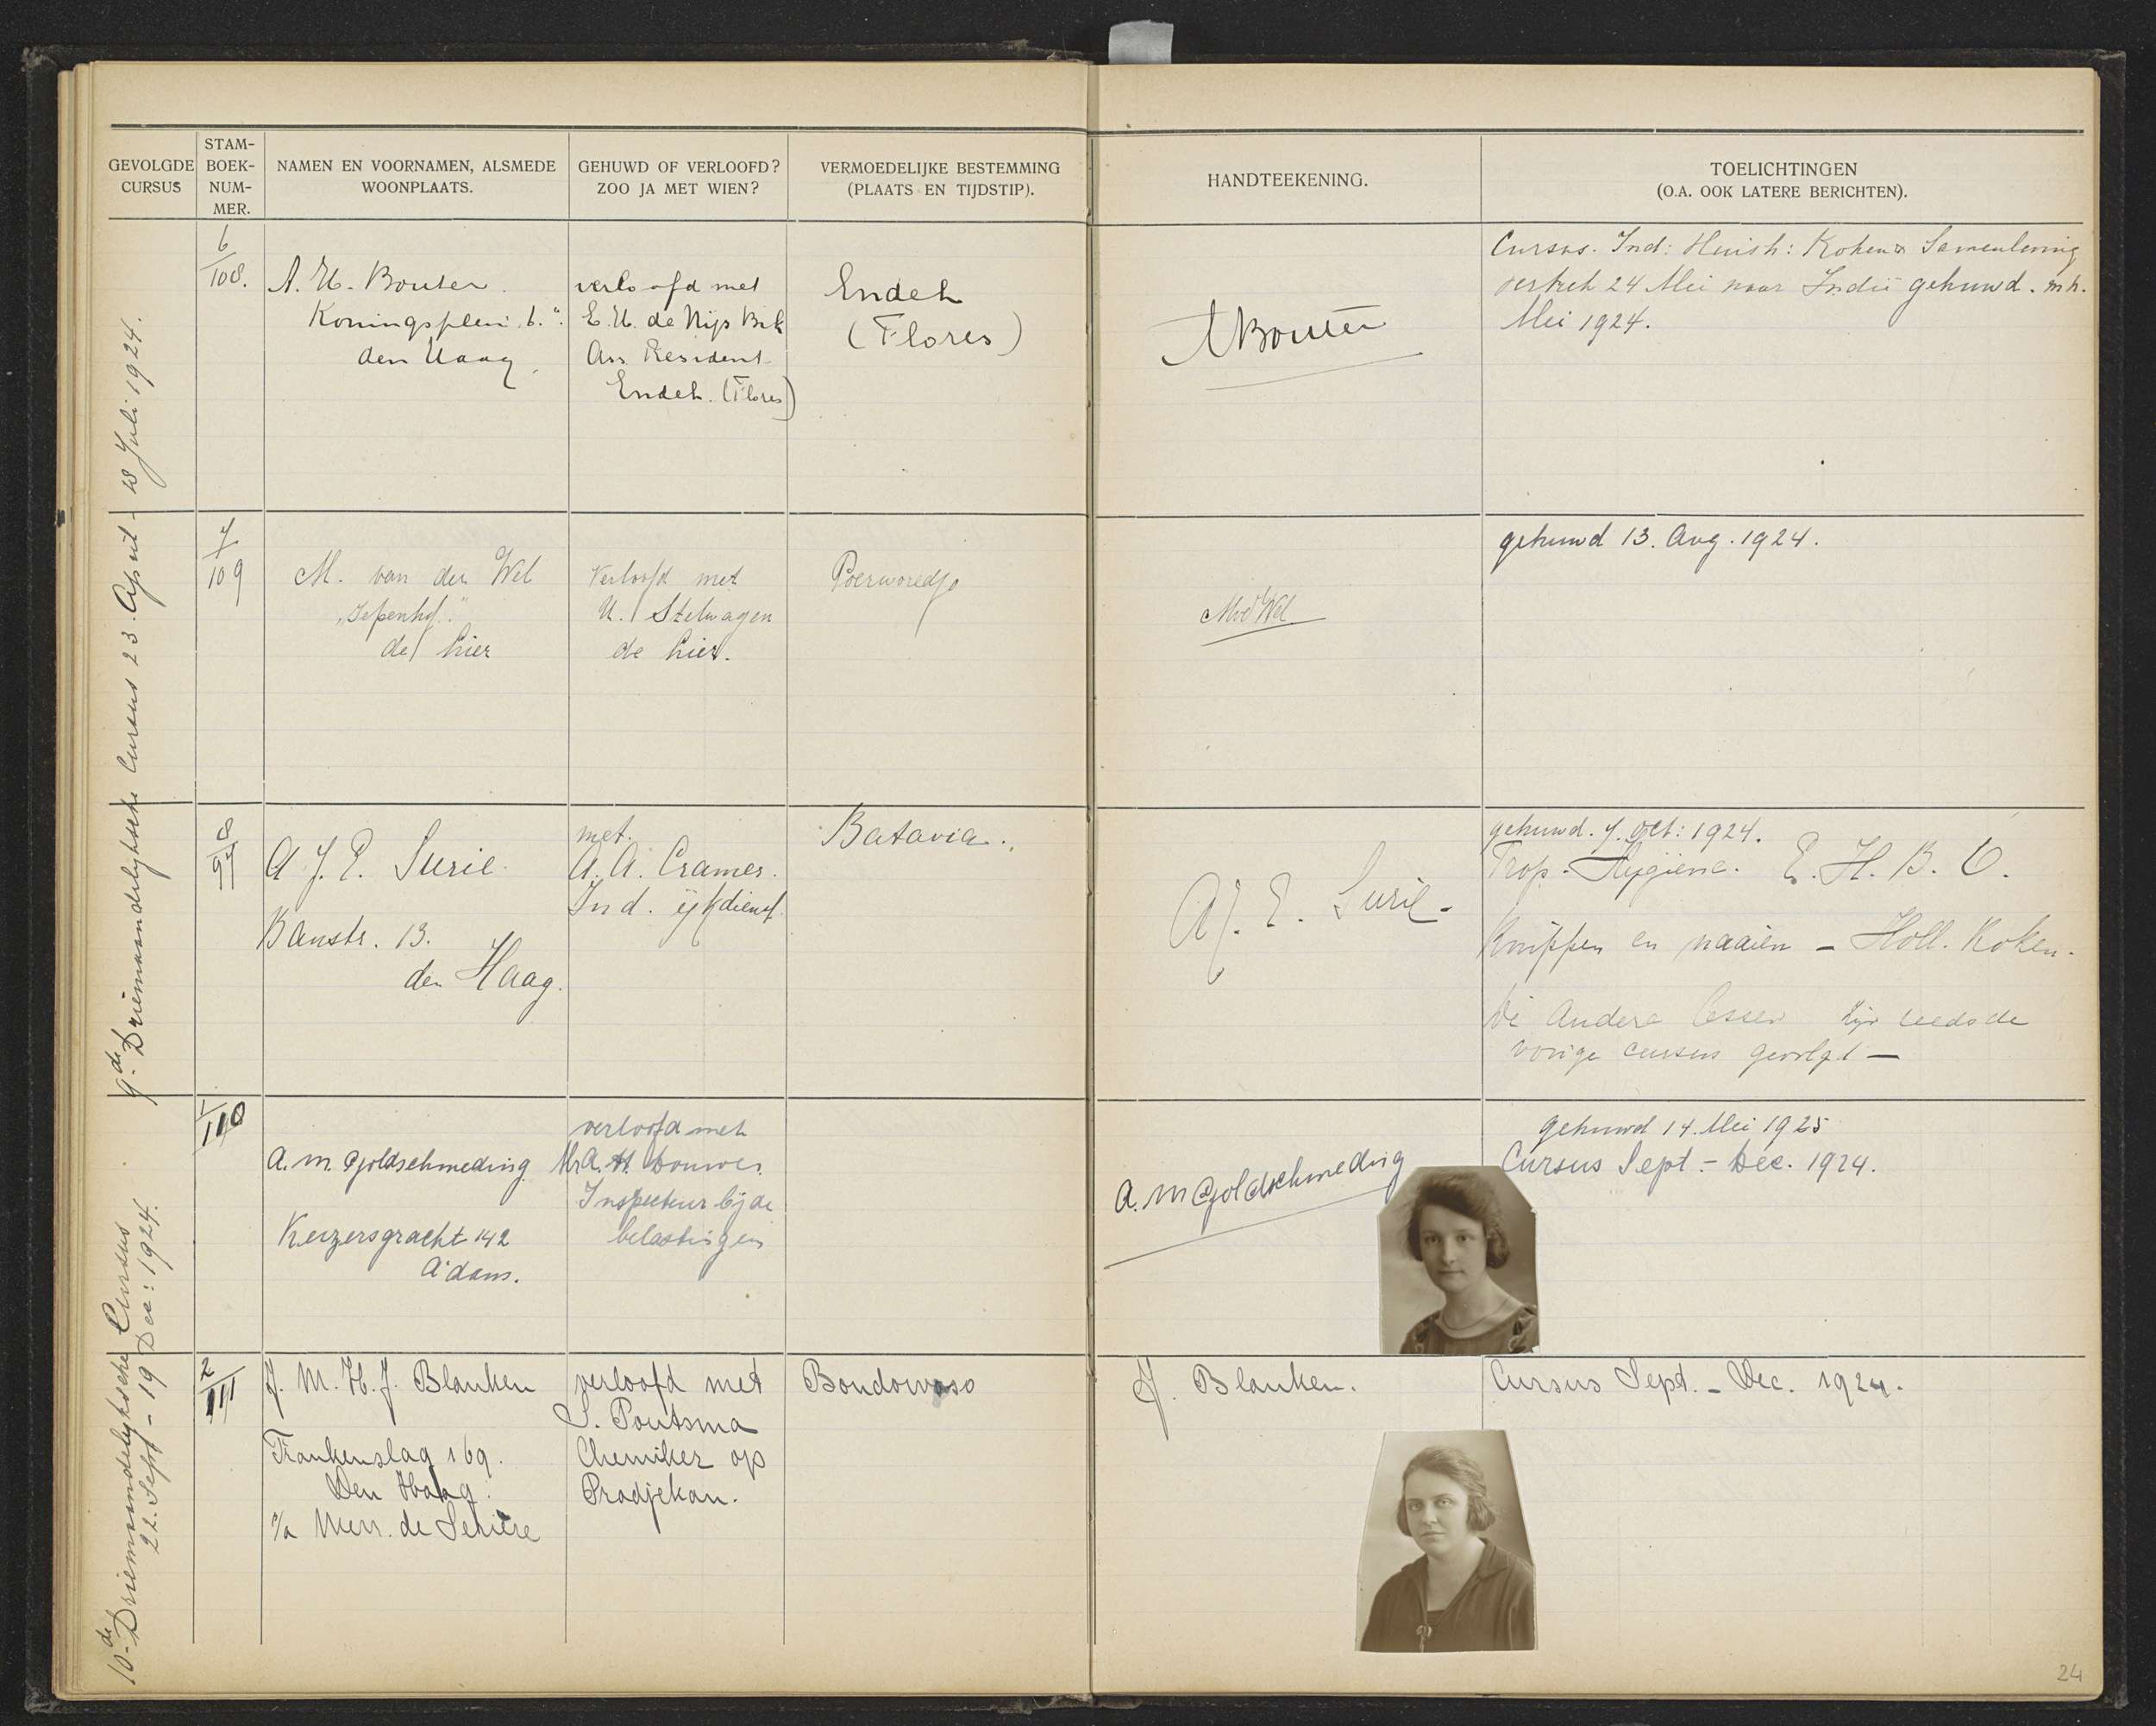 GEVOLGDE CURSUS
STAM-BOEK-NUM-MER.
NAMEN EN VOORNAMEN, ALSMEDE WOONPLAATS.
GEHUWD OF VERLOOFD? ZOO JA MET WIEN?
VERMOEDELIJKE BESTEMMING (PLAATS EN TIJDSTIP).
HANDTEEKENING.
TOELICHTINGEN (O.A. OOK LATERE BERICHTEN).
9de Driemaandelijksche Cursus 23 April - 18 Juli 1924.
6/108.
A. H. Bouter.
Koningsplein 6.
den Haag,
verloofd met
E. H. de Nijs Bik
Ass. Resident
Endeh. (Flores)
Endeh
(Flores)
ABouter
Cursus. Ind: Huish: Koken & Samenleving
vertrek 24 Mei naar Indië gehuwd. m. h.
Mei 1924.
7/109
M. van der Wel
"Iepenhof."
de Lier
Verloofd met
H. Stelwagen
de Lier.
Poerworedjo
MvdWel
gehuwd 13. Aug. 1924.
8/97
A. J. E. Surie
Banstr. 13.
den Haag.
met.
A. A. Cramer.
Ind. ijkdienst.
Batavia.
A. J. E. Surie.
gehuwd. 7. Oct: 1924.
Trop. Hygiene. E. H. B. O.
Knippen en naaien - Holl. Koken.
De andere lessen zijn reeds de
vorige cursus gevolgd —
10de Driemaandelijksche Cursus
22. Sept - 19 Dec: 1924.
1/110
A. M. Goldschmeding
Keizersgracht 142
A'dam.
verloofd met
Mr A. H. Douwes.
Inspecteur bij de
belastingen
A. M Goldschmeding
gehuwd 14. Mei 1925
Cursus Sept. - Dec. 1924.
2/111
J. M. H. J. Blanken
Frankenslag 169.
Den Haag.
c/a Mevr. de Serière
verloofd met
S. Poutsma
Chemiker op
Pradjekan.
Bondowoso
J. Blanken.
Cursus Sept. - Dec. 1924.
24